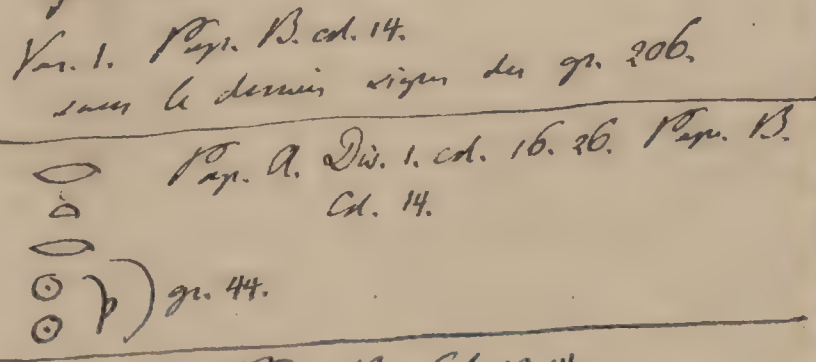 Var. 1. Pap. B. col. 14.
sans le dernier signe du gr. 206.
Pap. A. Div. 1. col. 16. 26. Pap. B.
Col. 14.
gr. 44.